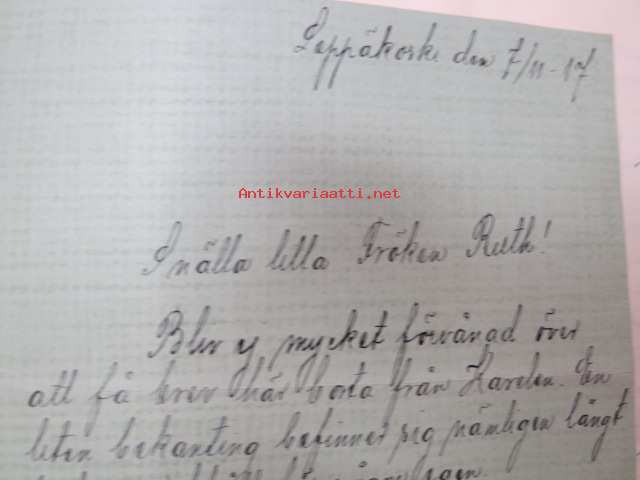 Leppäkoski den 7/11-17
Antikvariaatti.net
Snälla lilla Fröken Ruth!
Blev ej mycket förvånad över
att få brev här borta från Karelen. En
liten bekanting befinner sig nämligen långt